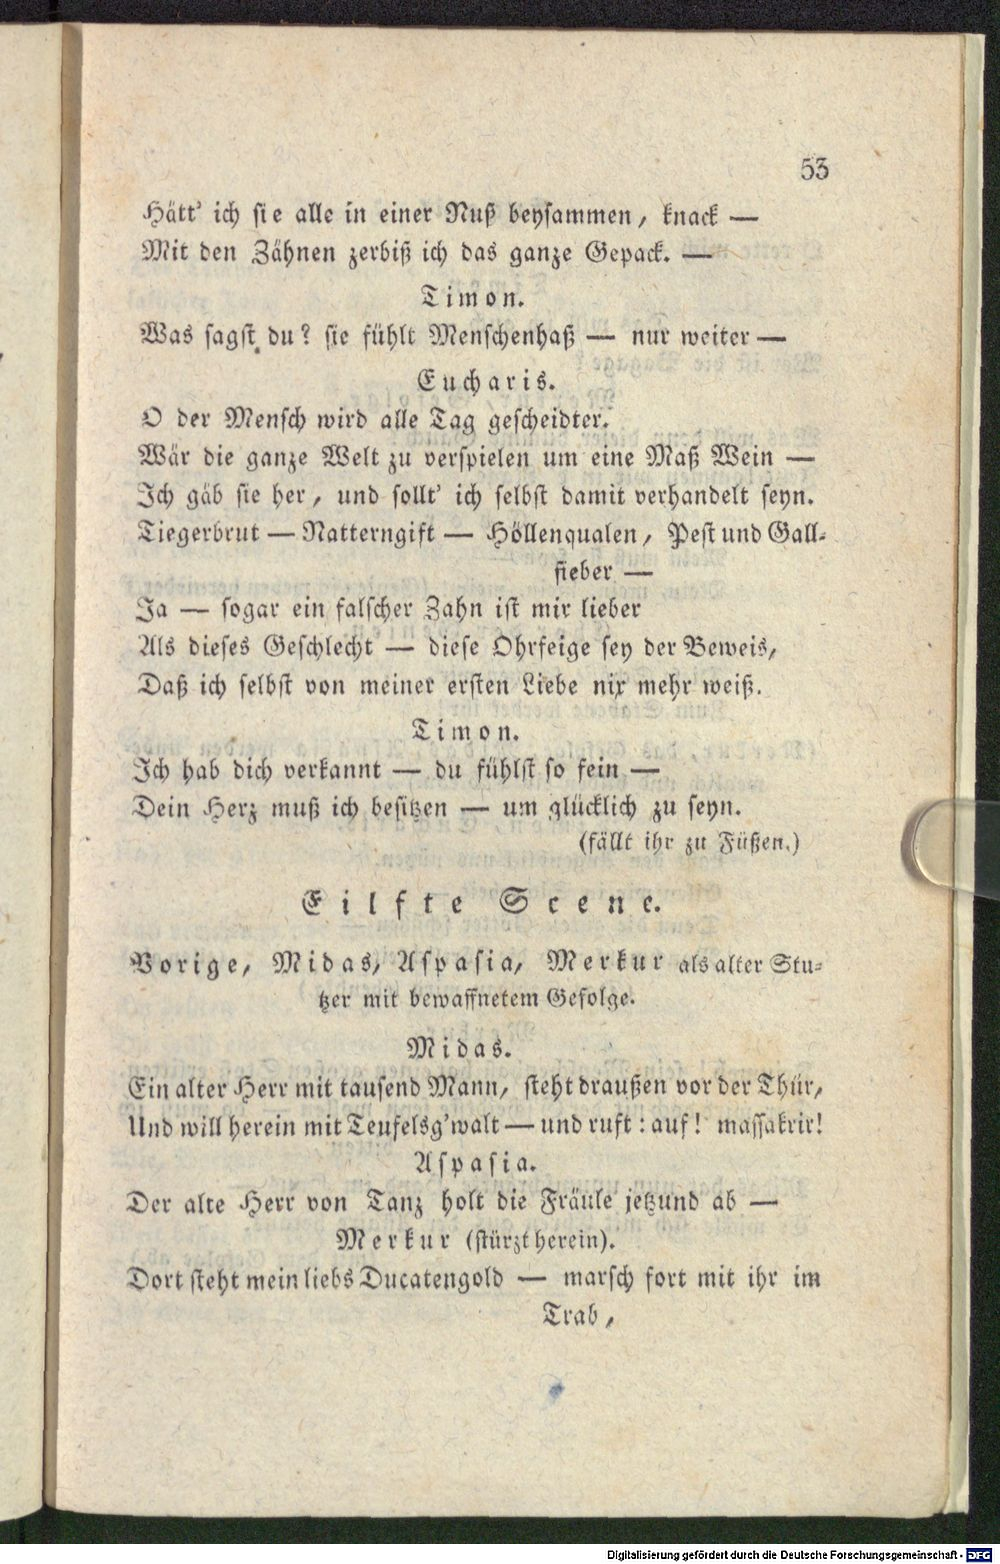 53
Hätt' ich sie alle in einer Nuß beysammen, knack —
Mit den Zähnen zerbiß ich das ganze Gepack. —
Timon.
Was sagst du? sie fühlt Menschenhaß — nur weiter —
Eucharis.
O der Mensch wird alle Tag gescheidter.
Wär die ganze Welt zu verspielen um eine Maß Wein —
Ich gäb sie her, und sollt' ich selbst damit verhandelt seyn.
Tiegerbrut — Natterngift — Höllenqualen, Pest und Gall-
fieber —
Ja — sogar ein falscher Zahn ist mir lieber
Als dieses Geschlecht — diese Ohrfeige sey der Beweis,
Daß ich selbst von meiner ersten Liebe nix mehr weiß.
Timon.
Ich hab dich verkannt — du fühlst so fein —
Dein Herz muß ich besitzen — um glücklich zu seyn.
(fällt ihr zu Füßen.)
Eilfte Scene.
Vorige, Midas, Aspasia, Merkur als alter Stu-
tzer mit bewaffnetem Gefolge.
Midas.
Ein alter Herr mit tausend Mann, steht draußen vor der Thür,
Und will herein mit Teufelsg'walt — und ruft: auf! massakrir!
Aspasia.
Der alte Herr von Tanz holt die Fräule jetzund ab —
Merkur (stürzt herein).
Dort steht mein liebs Ducatengold — marsch fort mit ihr im
Trab,
Digitalisierung gefördert durch die Deutsche Forschungsgemeinschaft - DFG